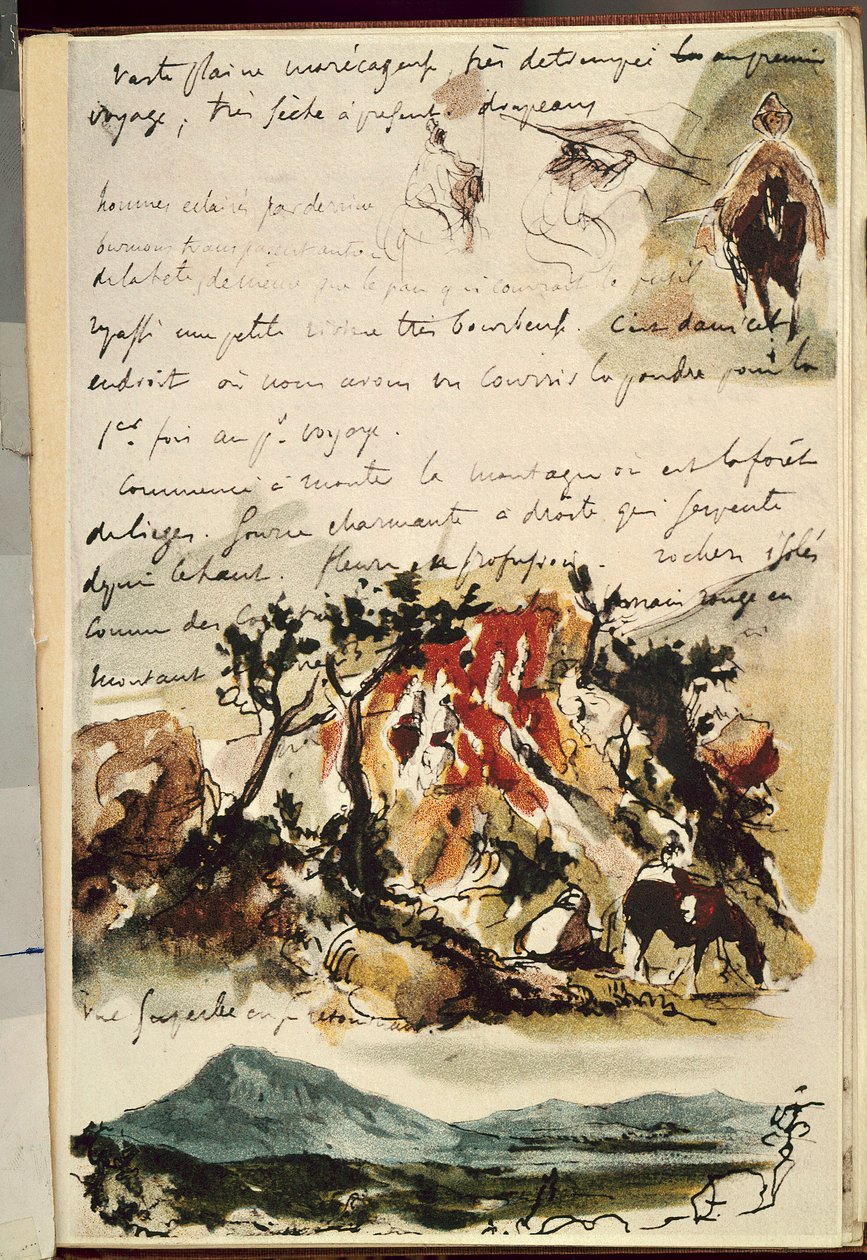 Vaste plaine marécageuse, très detrempée au premier
voyage; très sèche à present. drapeaux
hommes eclairés par derriere
burnous transparent autour
de la tete, de meme que le pan qui couvrait le fusil
repassé une petite riviere très bourbeuse. C'est dans cet
endroit où nous avons vu courrir la poudre pour la
1ere fois au pr. voyage.
Commencé à monter la montagne où est la forêt
de lieges. Source charmante à droite qui serpente
depuis le haut. fleurs en profusion. rochers isolés
comme des terrain rouge en
montant
Vue superbe en se retournant.